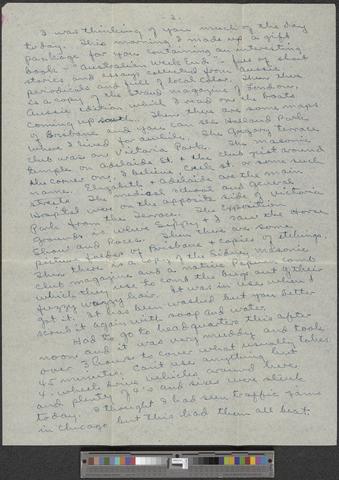 2.
I was thinking of you much of the day
today. This morning I made up a gift
package for you containing an interesting
book - "Australian Week End" - full of short
stories, and essays collected from Aussie
periodicals and full of local color. Then there
is a copy of the Strand magazine of London,
Aussie edition which I read on the boats
coming up south. Then there are some maps
of Brisbane and you can see Holland Park
where I lived for awhile. The Gregory terrace
club was on Victoria Park. The masonic
temple on Adelaide St. & the club just around
the corner on, I believe, Creek St. or some such
name. Elizabeth & Adelaide are the main
streets. The medical school and General
Hospital were on the opposite side of Victoria
Park from the Terrace. The Exposition
grounds is where & I saw the Horse
Show and Races. Then there are some
picture folder of Brisbane & copies of etchings.
Then there is a copy of the Sidney masonic
club magazine and a native Papuan comb
which they use to comb the bugs out of their
fuzzy wuzzy hair. It was in use when I
got it. It has been washed but you better
scrub it again with soap and water.
Had to go to headquarters this after
noon and it was very muddy and took
over 3 hours to cover what usually takes
45 minutes. Can't use anything but
4-wheel drive vehicles around here
and plenty of 4's and sixes were stuck
today. I thought I had seen traffic jams
in Chicago but this had them all beat.